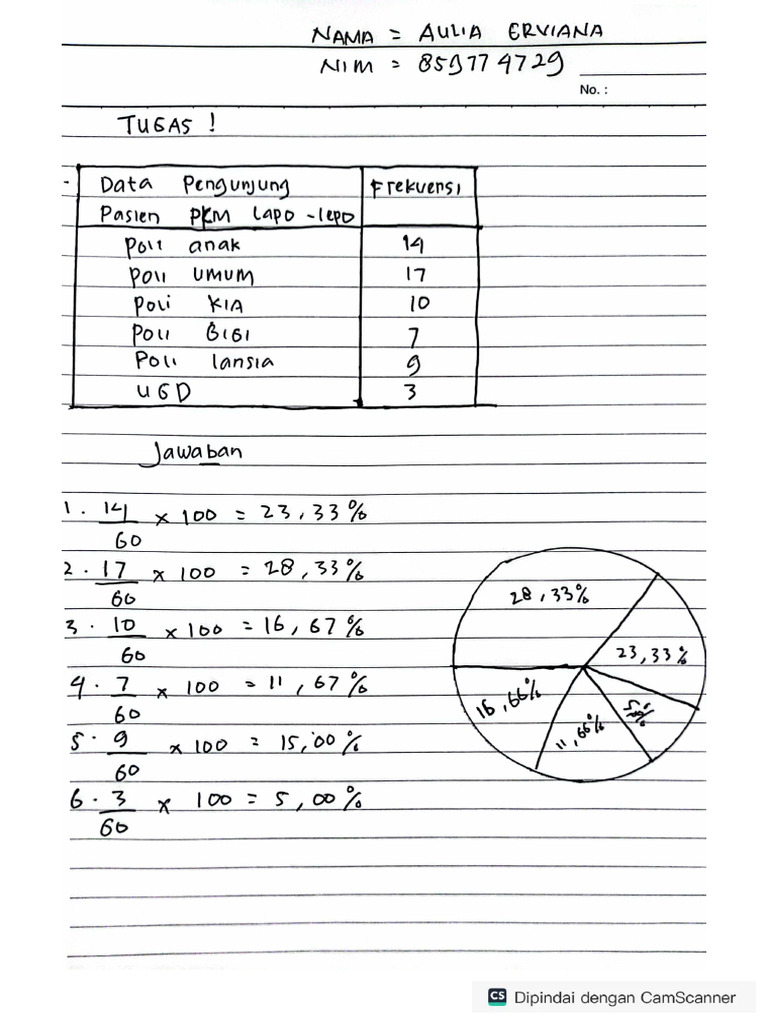 NAMA = AULIA ERVIANA
NIM = 859774729
No. :
TUGAS !
Data Pengunjung Frekuensi
Pasien PKM Lapo - lepo
Poli anak 14
Poli UMUM 17
Poli KIA 10
Poli GIGI 7
Poli lansia 9
UGD 3
Jawaban
1. 14/60 x 100 = 23,33%
2. 17/60 x 100 = 28,33%
3. 10/60 x 100 = 16,67%
4. 7/60 x 100 = 11,67%
5. 9/60 x 100 = 15,00%
6. 3/60 x 100 = 5,00%
28,33%
23,33%
16,66%
11,66%
CS Dipindai dengan CamScanner